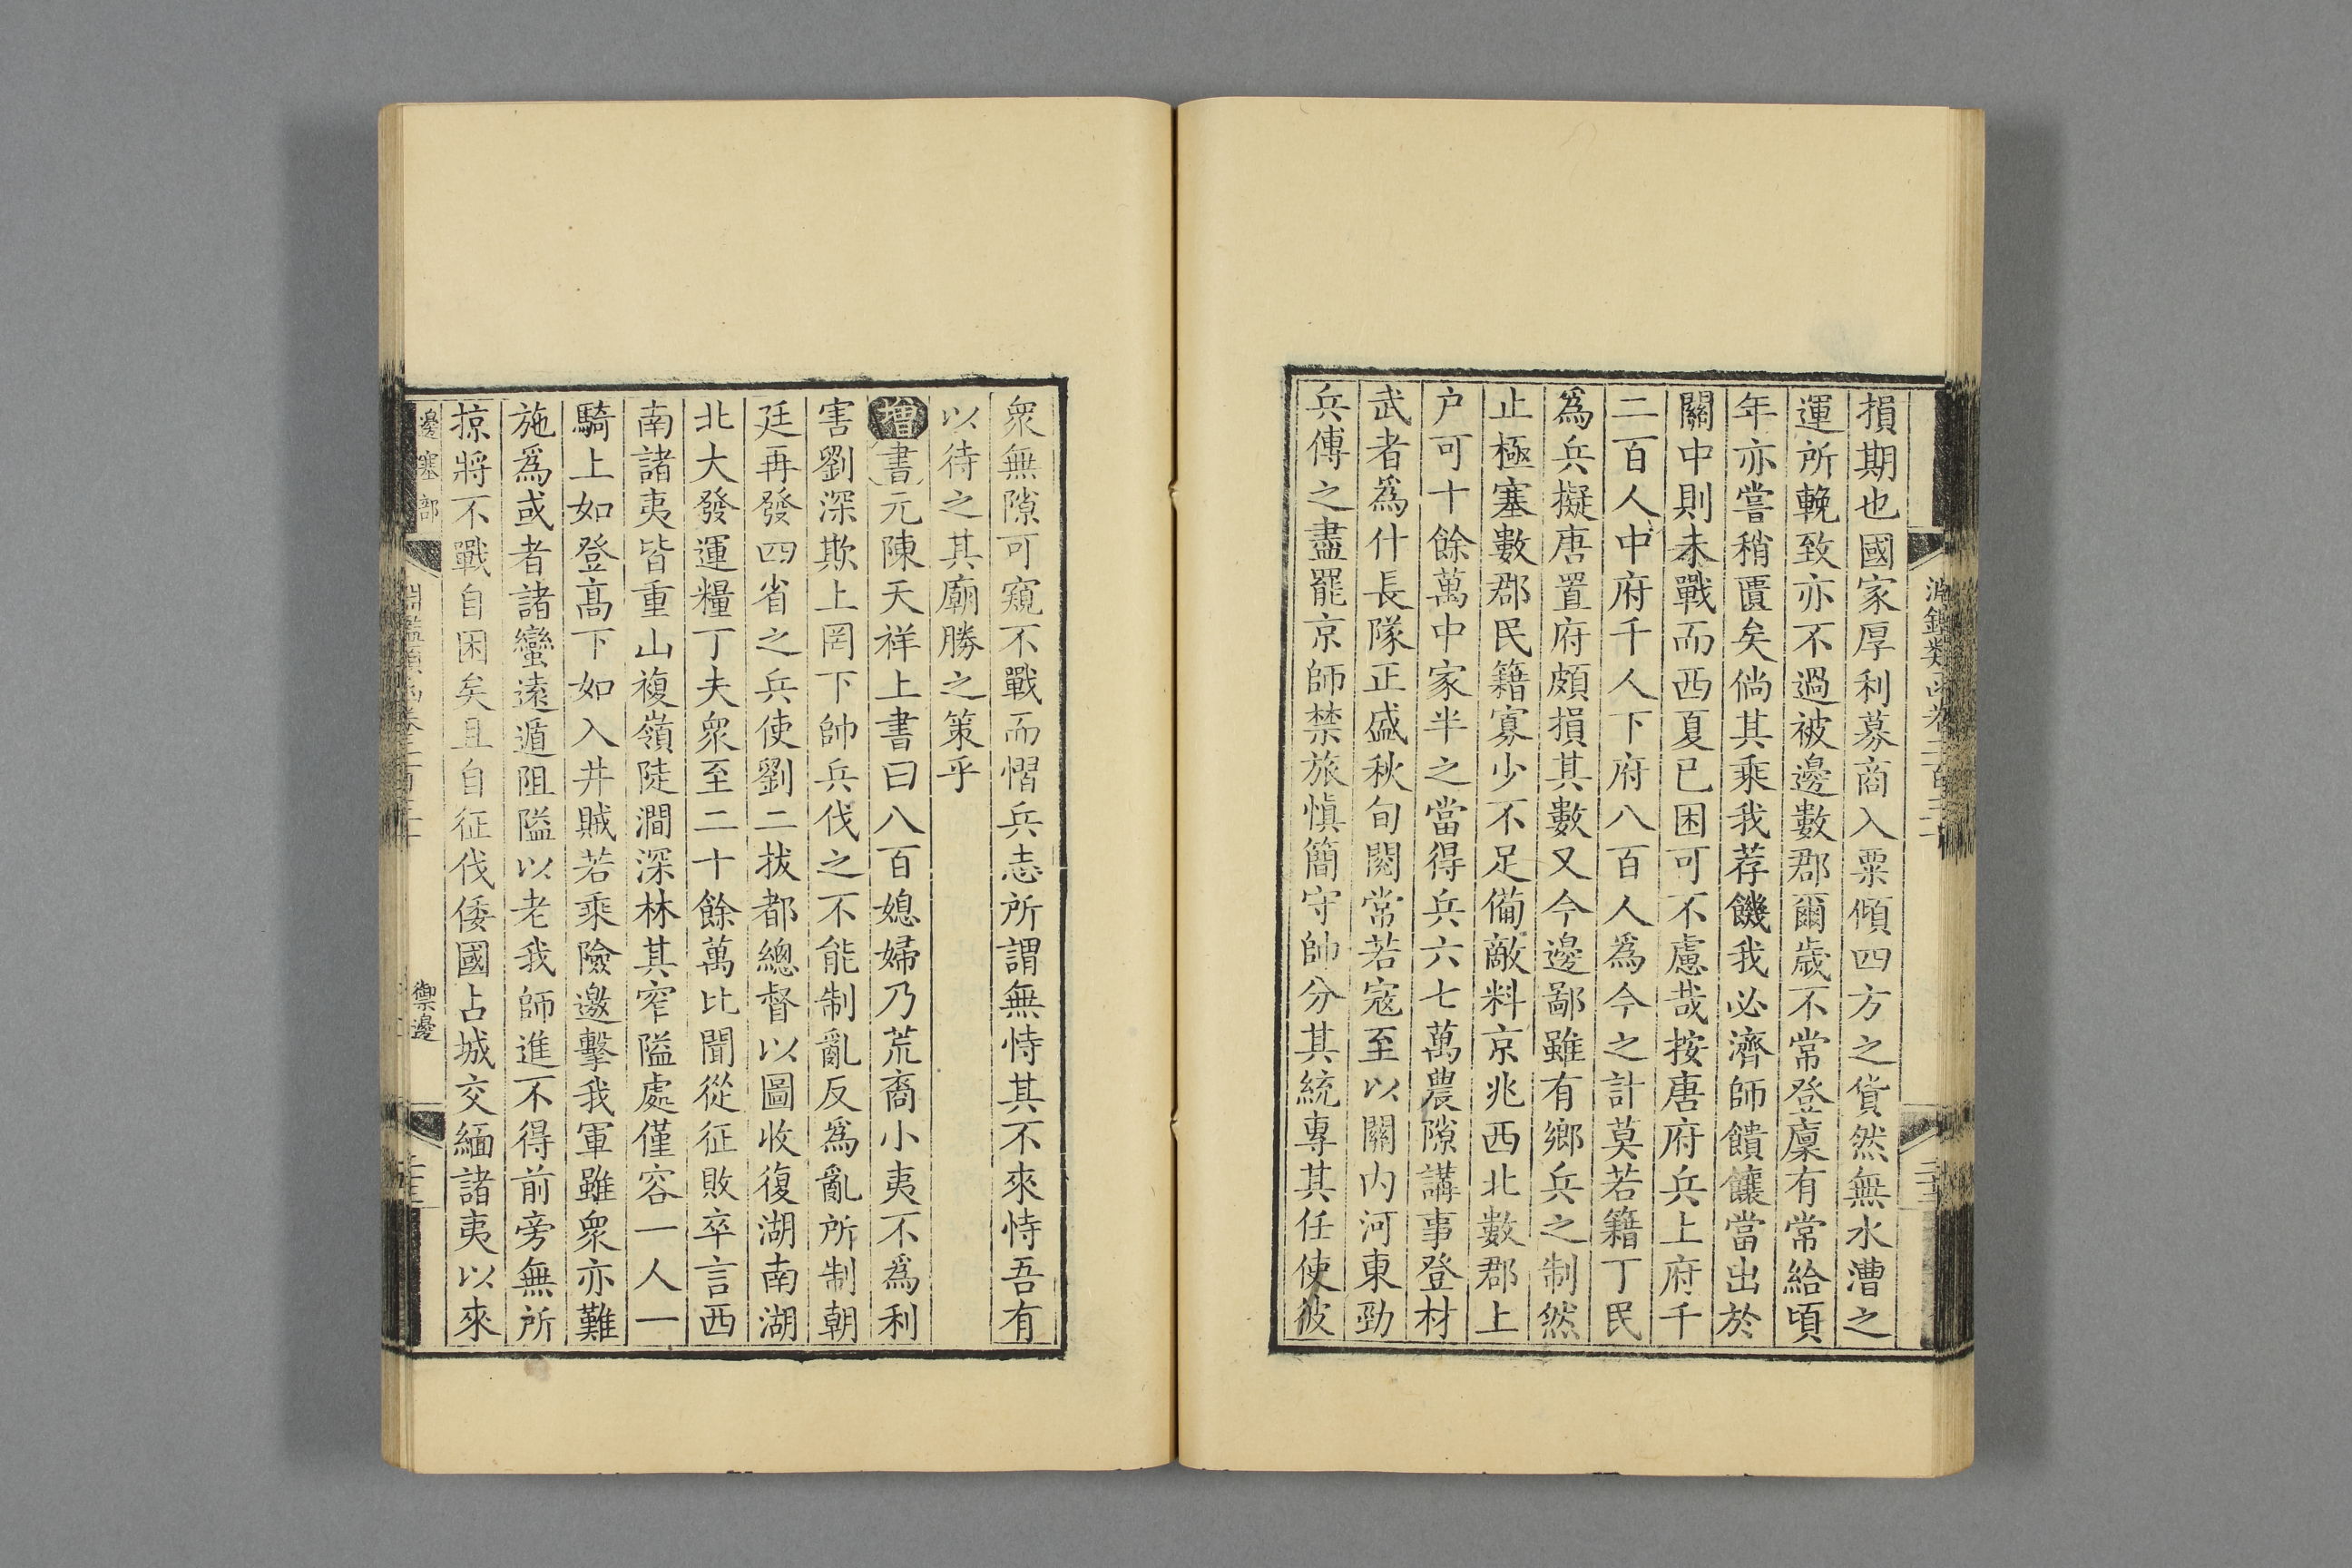 損期也國家厚利募商入粟傾四方之貨然無水漕之
運所輓致亦不過被邊數郡爾歲不常登廩有常給頃
年亦嘗稍匱矣倘其乘我荐饑我必濟師饋饟當出於
關中則未戰而西夏已困可不慮哉按唐府兵上府千
二百人中府千人下府八百人爲今之計莫若籍丁民
爲兵擬唐置府頗損其數又今邊鄙雖有鄉兵之制然
止極塞數郡民籍寡少不足備敵料京兆西北數郡上
户可十餘萬中家半之當得兵六七萬農隙講事登材
武者爲什長隊正盛秋旬閱常若寇至以關内河東勁
兵傳之盡罷京師禁旅慎簡守帥分其統專其任使彼
衆無隙可窺不戰而慴兵志所謂無恃其不來恃吾有
以待之其廟勝之策乎
增書元陳天祥上書曰八百媳婦乃荒裔小夷不爲利
害劉深欺上罔下帥兵伐之不能制亂反爲亂所制朝
廷再發四省之兵使劉二拔都總督以圖收復湖南湖
北大發運糧丁夫衆至二十餘萬比聞從征敗卒言西
南諸夷皆重山複嶺陡澗深林其窄隘處僅容一人一
騎上如登高下如入井賊若乘險邀擊我軍雖衆亦難
施爲或者諸蠻遠遁阻隘以老我師進不得前旁無所
掠將不戰自困矣且自征伐倭國占城交緬諸夷以來
邊塞部
御邊